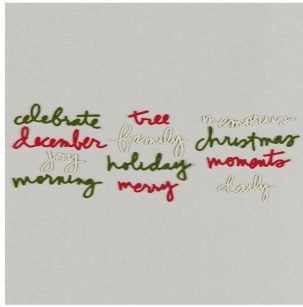 celebrate
december
joy
morning
tree
family
holiday
merry
memories
christmas
moments
daily